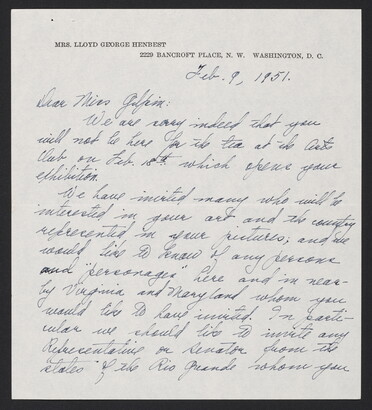 MRS. LLOYD GEORGE HENBEST
2229 BANCROFT PLACE, N. W. WASHINGTON, D. C.
Feb. 9, 1951.
Dear Miss Gilpin:
We are sorry indeed that you
will not be here for the tea at the Arts
Club on Feb. which opens your
exhibition.
We have invited many who will be
interested in your art and the country
represented in your pictures; and we
would like to know of any persons
and "personages" here and in near-
by Virginia and Maryland whom you
would like to have invited. In parti-
cular we should like to invite any
Representative or Senator from the
States of the Rio Grande whom you